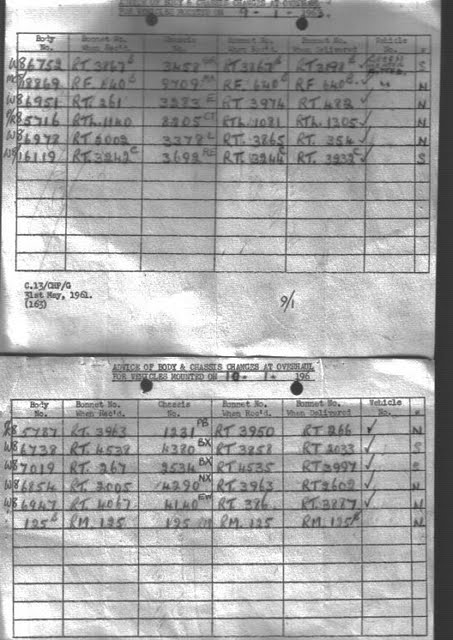 ADVICE OF BODY & CHASSIS CHANGES AT OVERHAUL
FOR VEHICLES MOUNTED ON 9 - 1 - 1963.
Body No. Bonnet No. When Rec'd. Chassis No. Bonnet No. When Rec'd. Bonnet No. When Delivered Vehicle No.
W86752 RT 3867 3458 RT 3867 RT 2198 ✓ S
8869 RF. 640 9709 RF. 640 RF 640 ✓ N
W86951 RT. 261 3283 E RT 3974 RT 482 ✓ N
R85716 RTL. 1140 8205 CT RTL. 1081 RTL. 1305 ✓ N
W86978 RT 2002 3378 L RT. 3865 RT. 354 ✓ N
16119 RT. 3242 3692 RE RT. 3244 RT. 3232 ✓ S
C.13/CHF/G
31st May, 1961.
(163)
9/1
ADVICE OF BODY & CHASSIS CHANGES AT OVERHAUL
FOR VEHICLES MOUNTED ON 10 - 1 - 196
Body No. Bonnet No. When Rec'd. Chassis No. Bonnet No. When Rec'd. Bonnet No. When Delivered Vehicle No.
R85787 RT. 3963 1231 PB RT 3950 RT 266 ✓ N
W86738 RT. 4538 4380 BX RT 3858 RT 2033 ✓ S
W87019 RT. 267 2534 BX RT 4535 RT 3997 ✓ S
W86854 RT 2005 4290 NX RT 3963 RT 2602 ✓ N
W86947 RT 4067 4140 EW RT 386 RT. 3887 ✓ N
125 RM. 125 125 RM. 125 RM. 125 N